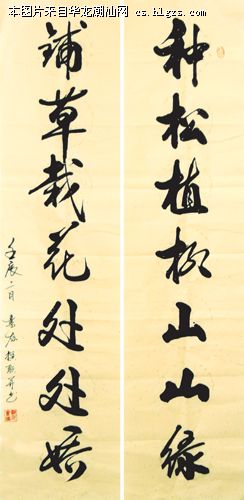 本图片来自华龙潮汕网 cs.blgzs.com
种松植柳山山绿
铺草栽花处处娇
壬辰二月